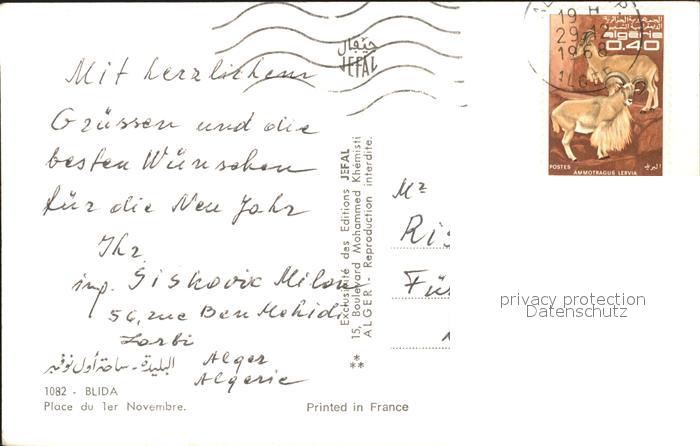 Mit herzlichem
Grüssen und die
besten Wünschen
für die Neu Jahr
Ihr
inp. Siskovic Milan
56, rue Ben Mehidi
Larbi
Alger
Algerie
البليدة - ساحة أول نوفمبر
1082 - BLIDA
Place du 1er Novembre.
Printed in France
جيفال
JEFAL
Exclusivité des Editions JEFAL
15, Boulevard Mohammed Khémisti
ALGER - Reproduction interdite.
Mr
privacy protection
Datenschutz
19 H
1968
الجمهورية الجزائرية
الديمقراطية الشعبية
algérie
0.40
POSTES
البريد
AMMOTRAGUS LERVIA